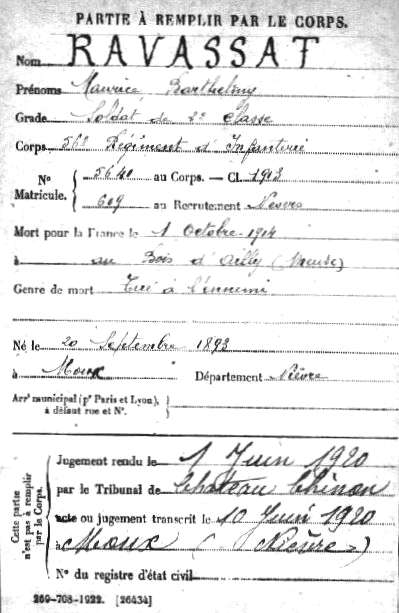 PARTIE À REMPLIR PAR LE CORPS.
Nom RAVASSAT
Prénoms Maurice Barthelmy
Grade Soldat de 2e Classe
Corps 56e Régiment d'Infanterie
N° Matricule. { 5640 au Corps. — Cl. 1913
609 au Recrutement Nevers
Mort pour la France le 1 Octobre 1914
à au Bois d'Ailly (Meuse)
Genre de mort Tué à l'ennemi
Né le 20 Septembre 1893
à Moux Département Nièvre
Arrt municipal (pr Paris et Lyon), à défaut rue et N°. {
Cette partie n'est pas à remplir par le Corps.
Jugement rendu le 1 Juin 1920
par le Tribunal de Chateau Chinon
acte ou jugement transcrit le 10 Juin 1920
à Moux (Nièvre)
N° du registre d'état civil
269-708-1922. [26434]